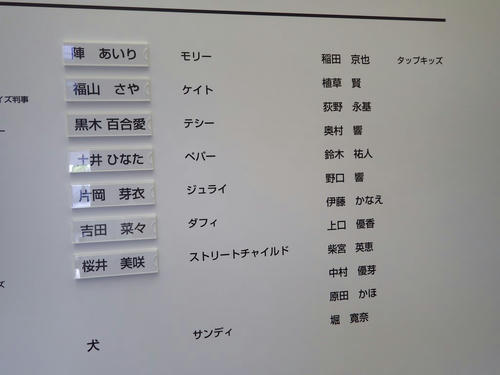 陣 あいり モリー
福山 さや ケイト
黒木 百合愛 テシー
土井 ひなた ペパー
片岡 芽衣 ジュライ
吉田 菜々 ダフィ
桜井 美咲 ストリートチャイルド
犬 サンディ
稲田 京也 タップキッズ
植草 賢
荻野 永基
奥村 響
鈴木 祐人
野口 響
伊藤 かなえ
上口 優香
柴宮 英恵
中村 優芽
原田 かほ
堀 寛奈
イズ判事